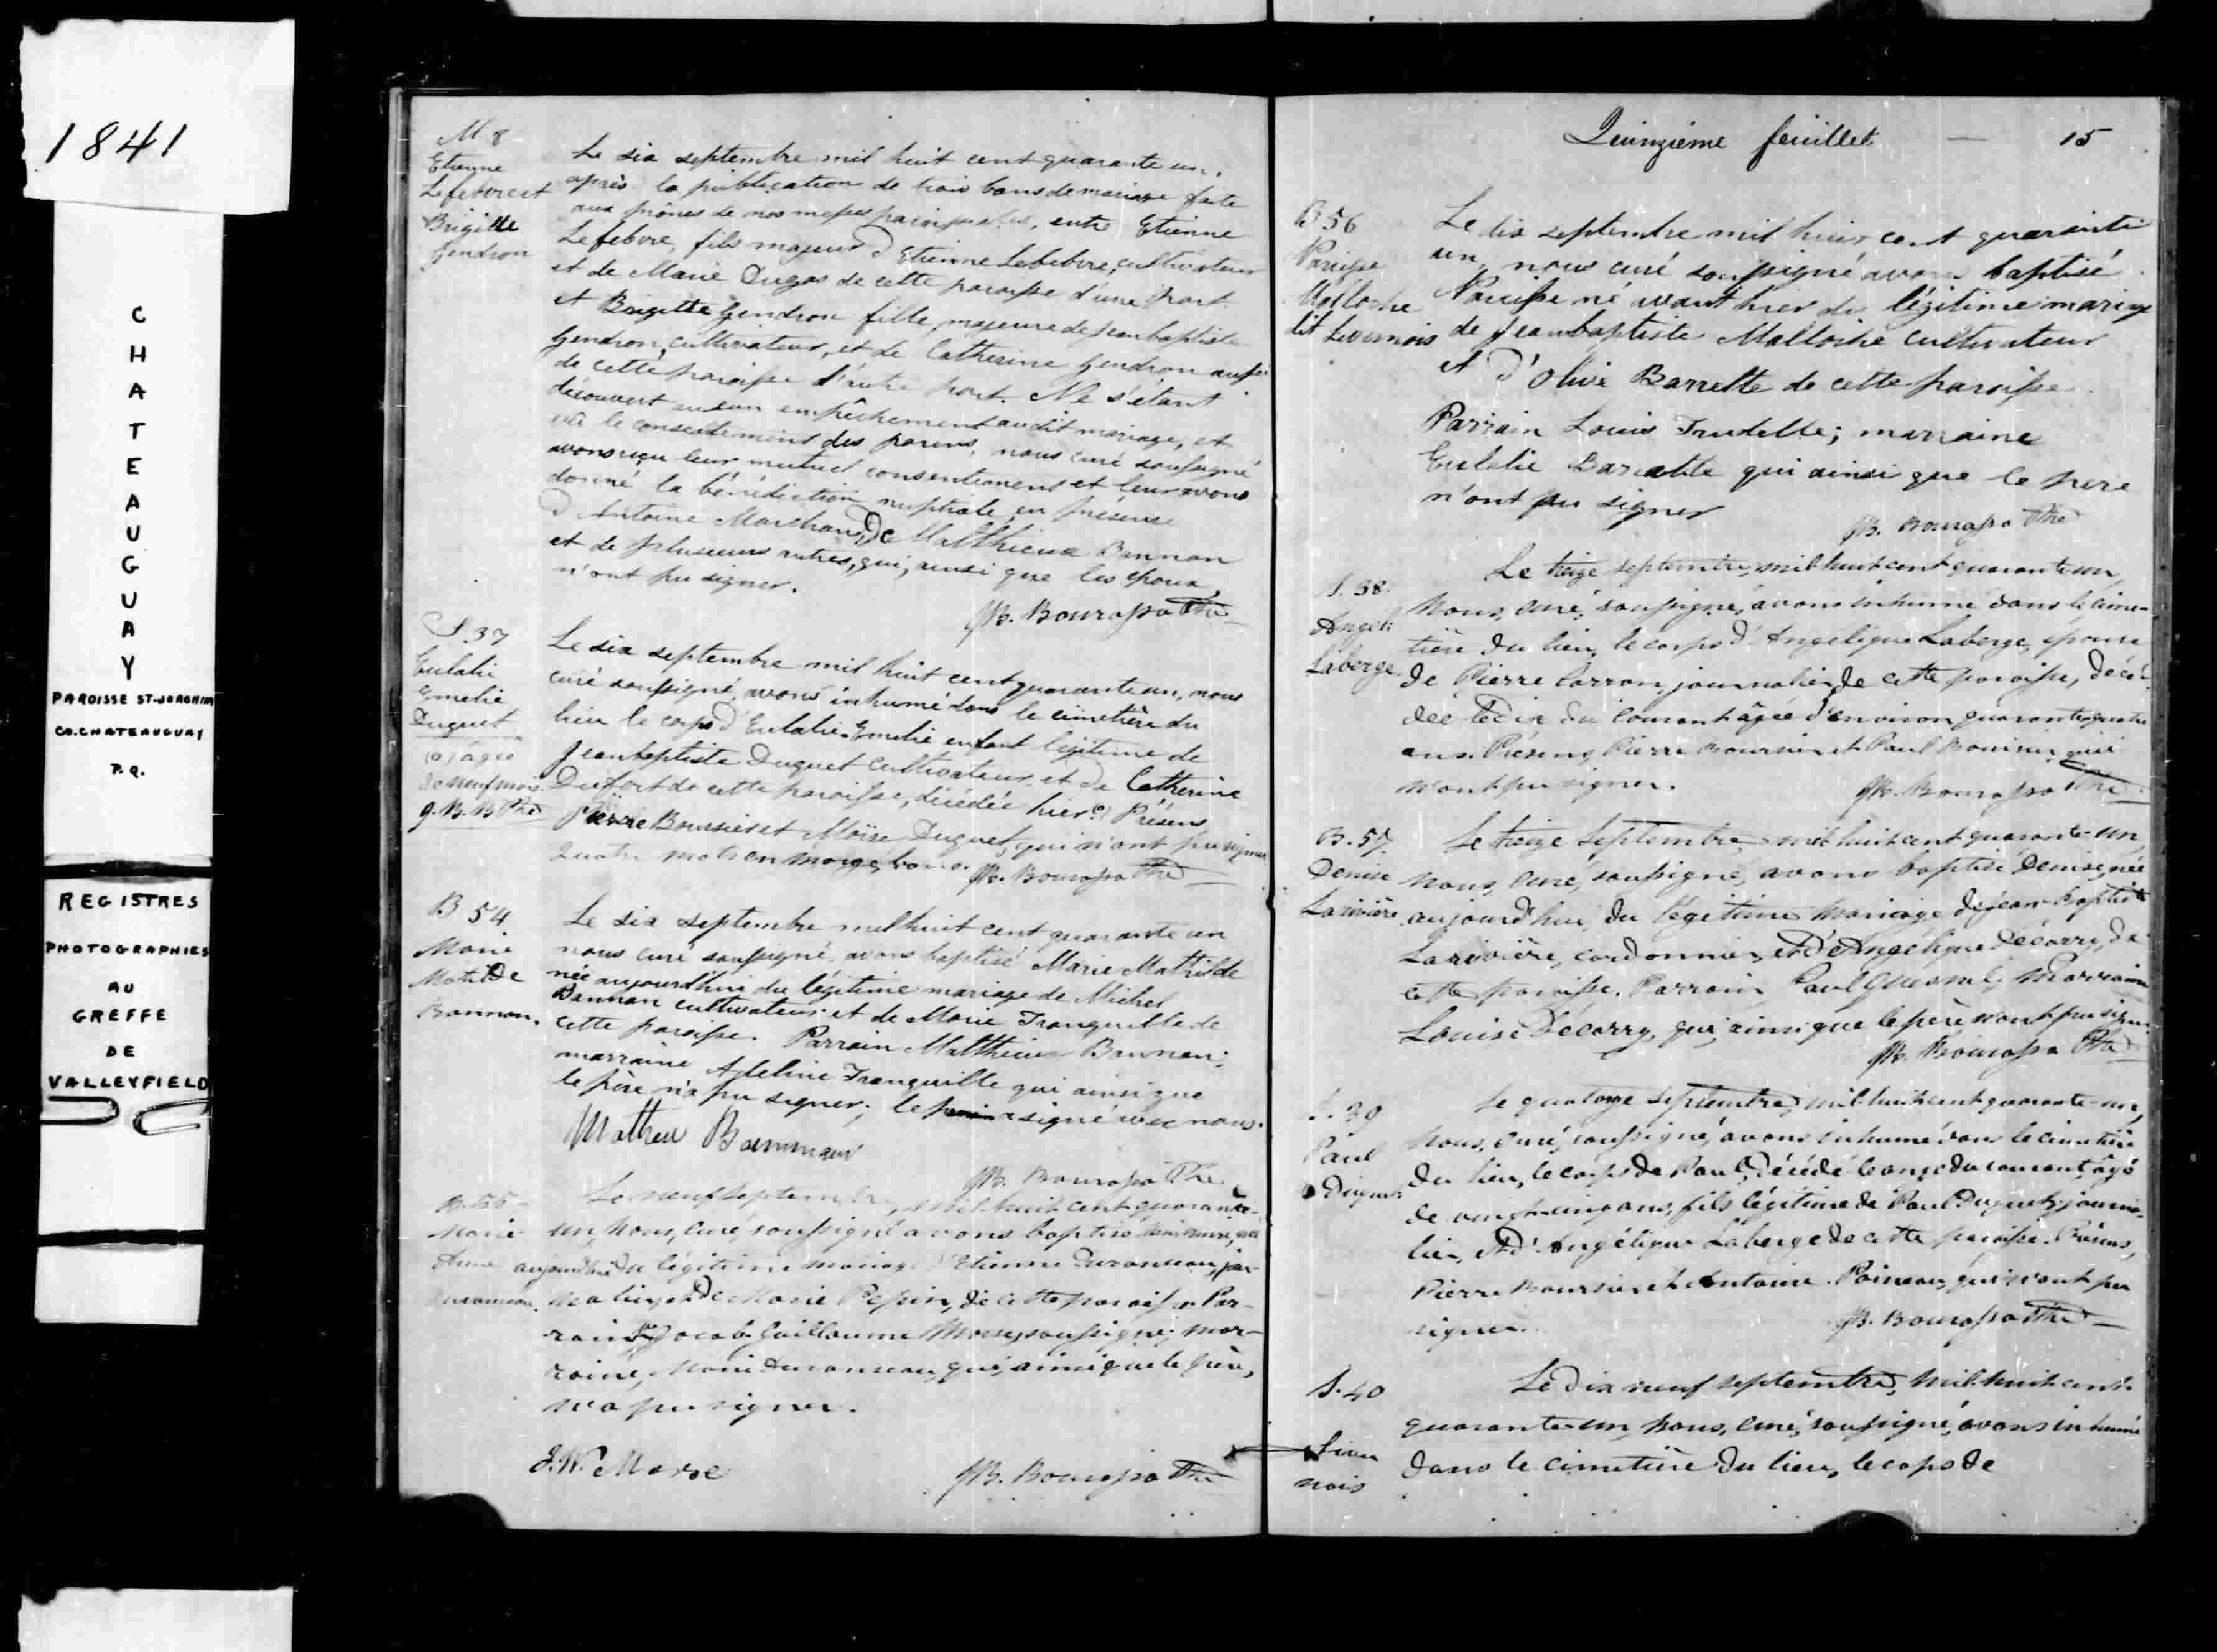 1841
CHATEAUGUAY
PAROISSE ST-JOACHIM
CO. CHATEAUGUAY
P.Q.
REGISTRES
PHOTOGRAPHIES
AU
GREFFE
DE
VALLEYFIELD
M 8
Etienne
Lefebvre et
Brigitte
Gendron
Le six septembre mil huit cent quarante un,
après la publication de trois bans de mariage faite
aux prônes de nos messes paroissiales, entre Etienne
Lefebvre, fils majeur d'Etienne Lefebvre, cultivateur
et de Marie Dugas de cette paroisse d'une part
et Brigitte Gendron fille majeure de Jean baptiste
Gendron, cultivateur, et de Catherine Gendron aussi
de cette paroisse d'autre part. Ne s'étant
découvert aucun empêchement audit mariage, et
vû le consentement des parens, nous curé soussigné
avons reçu leur mutuel consentement et leur avons
donné la bénédiction nuptiale en présence
d'Antoine Marchand, De Matthieux Bannan
et de plusieurs autres, qui, ainsi que les époux,
n'ont pu signer.
JB. Bourassa Ptre
S. 37
Eulalie
Emelie
Duguet
(a) âgée
de neuf mois.
J.B.B Ptre
Le six septembre mil huit cent quarante un, nous
curé soussigné, avons inhumé dans le cimetière du
lieu le corps d'Eulalie-Emelie enfant légitime de
Jean baptiste Duguet cultivateur et de Catherine
Dufort de cette paroisse, décédée hier (a) Présens
Pierre Boursier et Moïse Duguet, qui n'ont pu signer
Quatre mots en marge, bons. JB. Bourassa Ptre
B 54
Marie
Matilde
Bannan.
Le six septembre mil huit cent quarante un
nous curé soussigné avons baptisé Marie Mathilde
née aujourdhui du légitime mariage de Michel
Bannan cultivateur et de Marie Tranquille de
cette paroisse. Parrain Matthieux Bannan;
marraine Adeline Tranquille qui ainsi que
le père n'a pu signer; le parrain a signé avec nous.
Matheu Bannman
JB. Bourassa Ptre
B. 55
Marie
Anne
Le neuf septembre, mil huit cent quarante-
un, nous, curé, soussigné avons baptisé née
aujourdhui du légitime mariage d'Etienne jour-
nalier, et de Marie Pepin, de cette paroisse. Par-
rain Jacob Guillaume Morse, soussigné; mar-
raine, Marie qui, ainsi que le père,
n'a pu signer.
J.W. Morse
JB. Bourassa Ptre
Quinzième feuillet — 15
B 56
Narcisse
Malloche
dit Livernois
Le dix septembre mil huit cent quarante
un, nous curé soussigné avons baptisé
Narcisse né avant hier du légitime mariage
de Jean baptiste Malloche cultivateur
et d'Olive Barrette de cette paroisse.
Parrain Louis Trudelle; marraine
Eulalie Barrette qui ainsi que le père
n'ont pu signer
JB. Bourassa Ptre
S. 38.
Angeli
Laberge
Le treize septembre, mil huit cent quarante un,
nous, curé, soussigné, avons inhumé dans le cime-
tière du lieu, le corps d'Angelique Laberge, épouse
de Pierre Carron, journalier, de cette paroisse, décé-
dée le dix du courant âgée d'environ quarante quatre
ans. Présens, Pierre Boursier et Paul Boursier, qui
n'ont pu signer.
JB. Bourassa Ptre
B. 57
Denise
Larivière
Le treize Septembre mil huit cent quarante-un,
nous, curé, soussigné, avons baptisé Denise, née
aujourd'hui, du légitime mariage de Jean-Baptiste
Larivière, cordonnier, et d'Angélique Décarry, de
cette paroisse. Parrain Paul Quesnel; Marraine
Louise Décarry, qui, ainsi que le père, n'ont pu signer.
JB. Bourassa Ptre
S. 39
Paul
Duguet
Le quatorze Septembre, mil huit cent quarante-un,
nous, curé, soussigné, avons inhumé dans le cimetière
du lieu, le corps de Paul, décédé le onze du courant, âgé
de vingt cinq ans, fils légitime de Paul Duguet, journa-
lier, et d'Angélique Laberge de cette paroisse. Présens,
Pierre Boursier et Antoine Poineau, qui n'ont pu
signer.
JB. Bourassa Ptre
S. 40
nois
Le dix neuf septembre, mil huit cent
quarante-un, nous, curé, soussigné, avons inhumé
dans le cimetière du lieu, le corps de